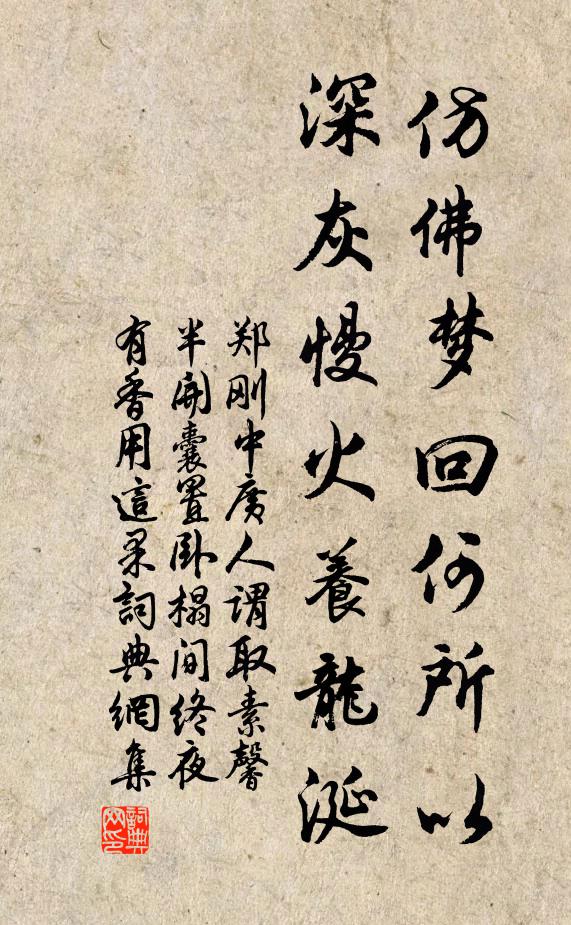 仿佛梦回何所以
深灰慢火養龍涎
郑刚中廣人謂取素馨
半開囊置卧榻间终夜
有香用這果詞典網集
詞典网印